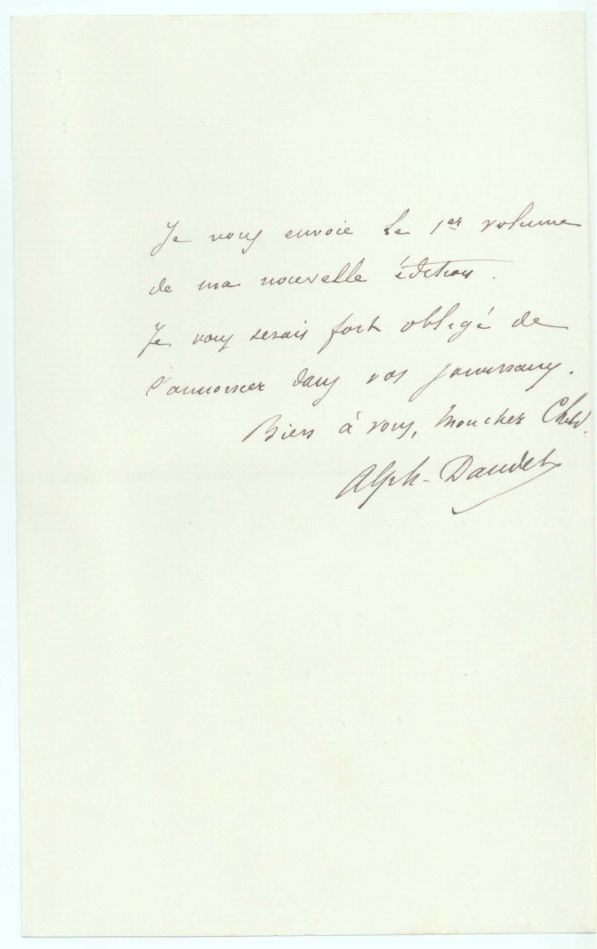 Je vous envoie le 1er volume
de ma nouvelle édition.
Je vous serais fort obligé de
l'annoncer dans vos journaux.
Bien à vous, mon cher
Alph. Daudet